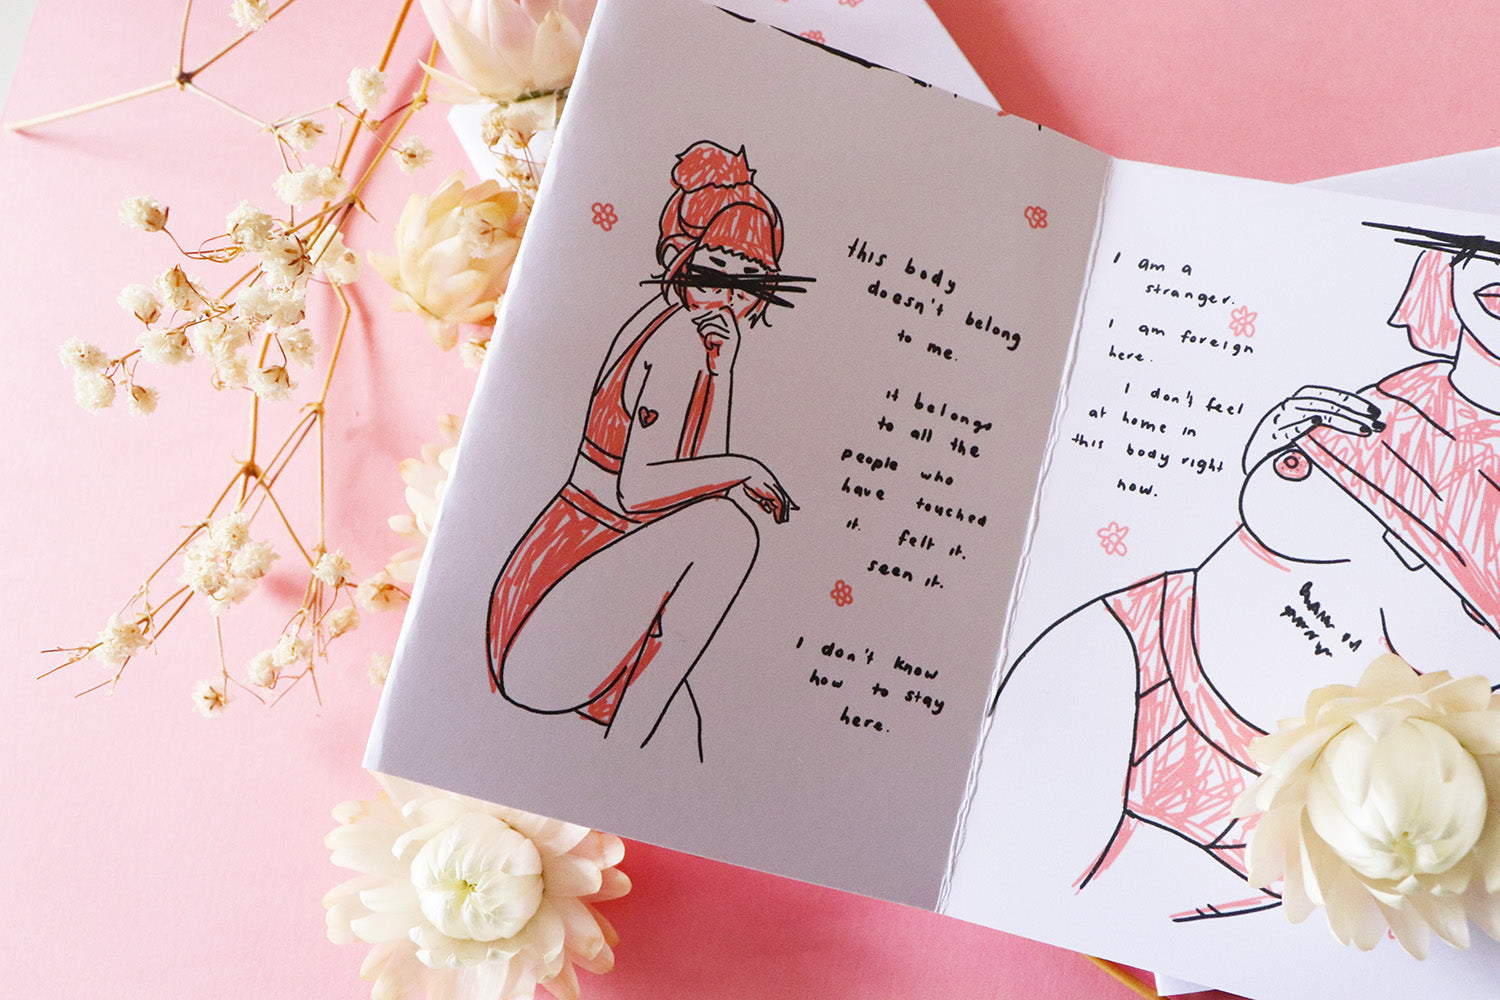 this body
doesn't belong
to me.
it belongs
to all the
people who
have touched
it. felt it.
seen it.
I don't know
how to stay
here.
I am a
stranger.
I am foreign
here.
I don't feel
at home in
this body right
now.